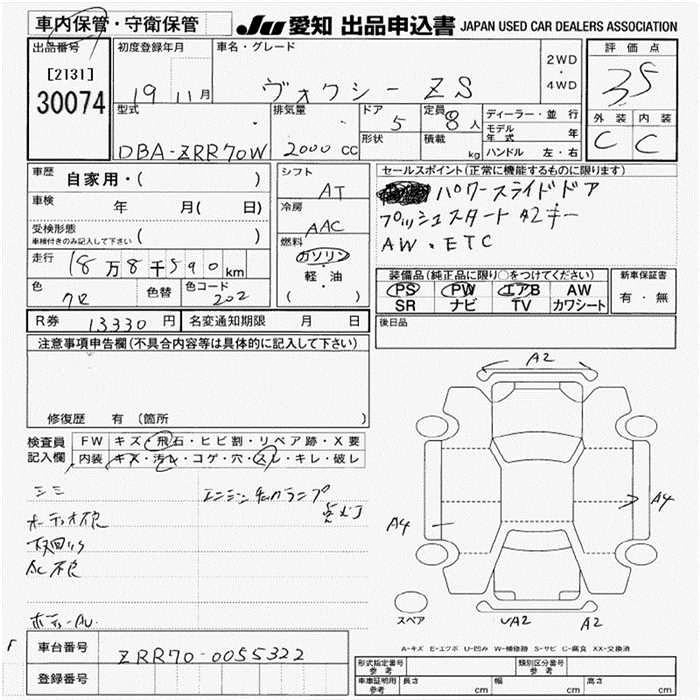 車内保管・守衛保管
JU 愛知 出品申込書 JAPAN USED CAR DEALERS ASSOCIATION
出品番号
[2131]
30074
初度登録年月
19 年 11 月
車名・グレード
ヴォクシー ZS
2WD
・
4WD
評価点
3.5
外装 内装
C C
型式
DBA-ZRR70W
排気量
2000 CC
ドア
5
形状
定員
8 人
積載
kg
ディーラー・並行
モデル年式 年
ハンドル 左・右
車歴
自家用・( )
車検
年 月( 日)
受検形態
車検付きのみ記入して下さい ( )
走行
18万8千590km
色
クロ
色替
色コード
202
シフト
AT
冷房
AAC
燃料
ガソリン
軽・油
( )
セールスポイント(正常に機能するものに限ります)
パワースライドドア
プッシュスタート
AW・ETC
装備品(純正品に限り○をつけてください)
PS PW エアB AW
SR ナビ TV カワシート
新車保証書
有・無
R券 13330 円
名変通知期限 月 日
後日品
注意事項申告欄(不具合内容等は具体的に記入して下さい)
修復歴 有(箇所 )
検査員
記入欄
FW キズ・飛石・ヒビ割・リペア跡・X要
内装 キズ・汚レ・コゲ・穴・スレ・キレ・破レ
シミ
エンジンチェックランプ
点灯
オーディオ不良
AC不良
A2
A4
A4
UA2
A2
スペア
A-キズ E-エクボ U-凹み W-補修跡 S-サビ C-腐食 XX-交換済
車台番号
ZRR70-0055322
登録番号
形式指定番号
参考
類別区分番号
参考
車庫証明用
参考
長さ cm 幅 cm 高さ cm